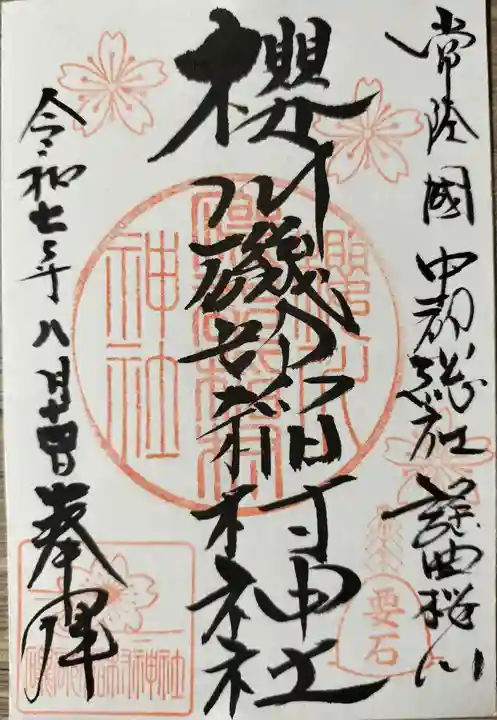 常陸國中郡総社 謡曲桜川
櫻川磯部稲村神社
令和七年八月十四日奉拝
要石
神社
磯部稲村神社